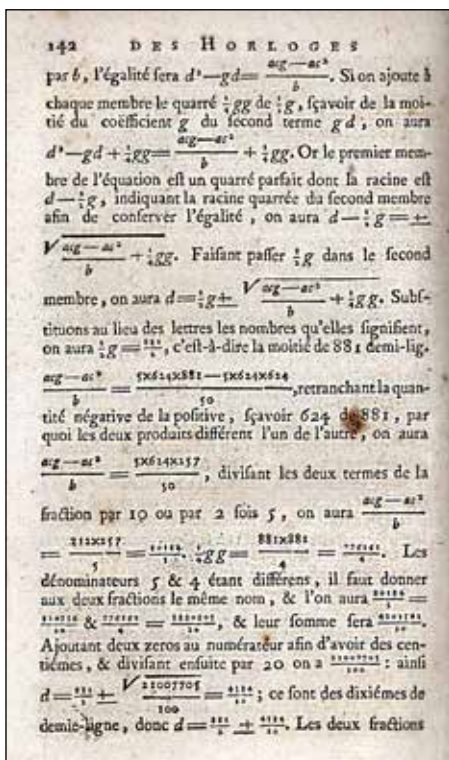 142 DES HORLOGES
par b, l'égalité sera d²—gd= acg—ac²/b. Si on ajoute à
chaque membre le quarré ¼gg de ½g, sçavoir de la moi-
tié du coëfficient g du second terme gd, on aura
d²—gd+¼gg= acg—ac²/b +¼gg. Or le premier mem-
bre de l'équation est un quarré parfait dont la racine est
d—½g, indiquant la racine quarrée du second membre
afin de conserver l'égalité, on aura d—½g=±
√ acg—ac²/b +¼gg. Faisant passer ½g dans le second
membre, on aura d=½g± √ acg—ac²/b +¼gg. Subs-
tituons au lieu des lettres les nombres qu'elles signifient,
on aura ½g= 881/2, c'est-à-dire la moitié de 881 demi-lig.
acg—ac²/b = 5x624x881—5x624x624/50, retranchant la quan-
tité négative de la positive, sçavoir 624 de 881, par
quoi les deux produits différent l'un de l'autre, on aura
acg—ac²/b = 5x624x257/50, divisant les deux termes de la
fraction par 10 ou par 2 fois 5, on aura acg—ac²/b
= 312x257/5 = ¼gg= 881x881/4 = Les
dénominateurs 5 & 4 étant différens, il faut donner
aux deux fractions le même nom, & l'on aura =
& = , & leur somme sera
Ajoutant deux zeros au numérateur afin d'avoir des cen-
tiémes, & divisant ensuite par 20 on a 21007705/100 : ainsi
d= 881/2 ± √ 21007705/100 = ; ce sont des dixiémes de
demie-ligne, donc d= 881/2 ± . Les deux fractions